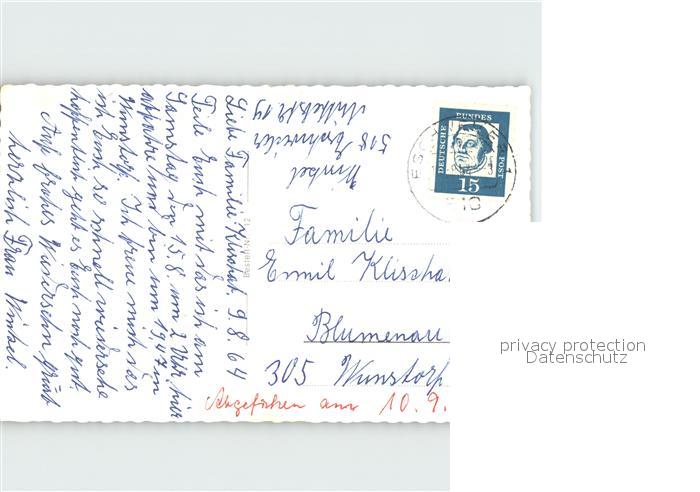 Liebe Familie Klisshat. 9.8.64
Teile Euch mit das ich am
Samstag den 15.8. um 2 Uhr hier
abfahre und bin um 19,47 in
Wunstorf. Ich freue mich das
ich Euch so schnell wiedersehe
hoffentlich geht es Euch noch gut.
Auf frohes Wiedersehn grüßt
herzlich Frau Winkel.
Winkel
518 Eschweiler
Bestell-Nr. 12
DEUTSCHE BUNDESPOST
15
ESCHWEILER 1
518
Familie
Emil Klissha
Blumenau
305 Wunstorf
Abgefahren am 10.9.
privacy protection
Datenschutz